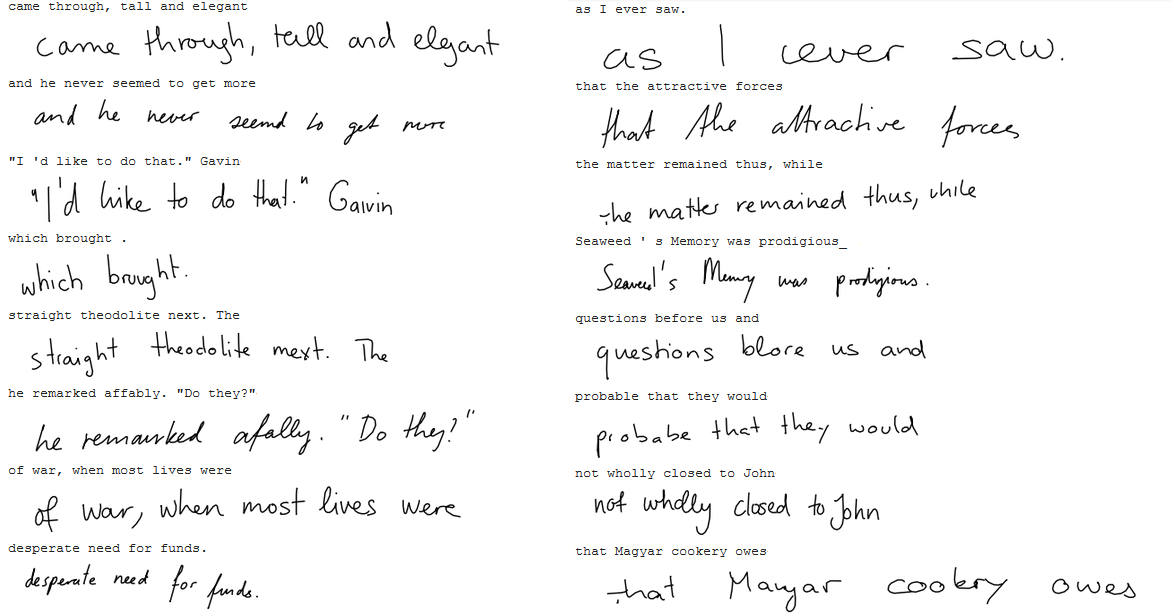 came through, tall and elegant
came through, tall and elegant
and he never seemed to get more
and he never seemd to get more
"I 'd like to do that." Gavin
"I'd hike to do that." Gaivin
which brought .
which brought.
straight theodolite next. The
straight theodolite mext. The
he remarked affably. "Do they?"
he remaurked afally. "Do they?"
of war, when most lives were
of war, when most lives were
desperate need for funds.
desperate need for funds.
as I ever saw.
as I cever saw.
that the attractive forces
that the attractive forces
the matter remained thus, while
the matter remained thus, while
Seaweed ' s Memory was prodigious_
Seaweed's Memory was prodigious.
questions before us and
questions blore us and
probable that they would
probabe that they would
not wholly closed to John
not wholly closed to John
that Magyar cookery owes
that Magyar cookery owes